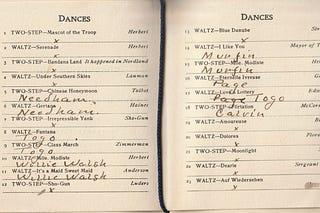 DANCES
1 TWO-STEP—Mascot of the Troop Herbert
x
2 WALTZ—Serenade Herbert
x
3 TWO-STEP—Bandana Land It happened in Nordland
x
4 WALTZ—Under Southern Skies Lauman
x
5 TWO-STEP—Chinese Honeymoon Talbot
Needham
6 WALTZ—Haines
Needham
7 TWO-STEP—Irrepressible Yank Sho-Gun
x
8 WALTZ—Fontana
Togo
9 TWO-STEP—Class March Zimmerman
Togo
10 WALTZ—Mlle. Modiste Herbert
Willie Walsh
11 WALTZ—It's a Maid Sweet Maid Anderson
Willie Walsh
12 TWO-STEP—Sho-Gun Luders
x
DANCES
13 WALTZ—Blue Danube
x
14 WALTZ—I Like You Mayor of
Murfin
15 TWO-STEP—Mlle. Modiste Her
Murfin
16 WALTZ—Estellita Ivresse
Page
17 WALTZ—Lottery
Page Togo
18 TWO-STEP—Flirtation
Calvin
19 WALTZ—Amoureuse
x
20 WALTZ—Dolores
x
21 TWO-STEP—Moonlight
x
22 WALTZ—Dearie
x
23 WALTZ—Auf Wiedersehen
x